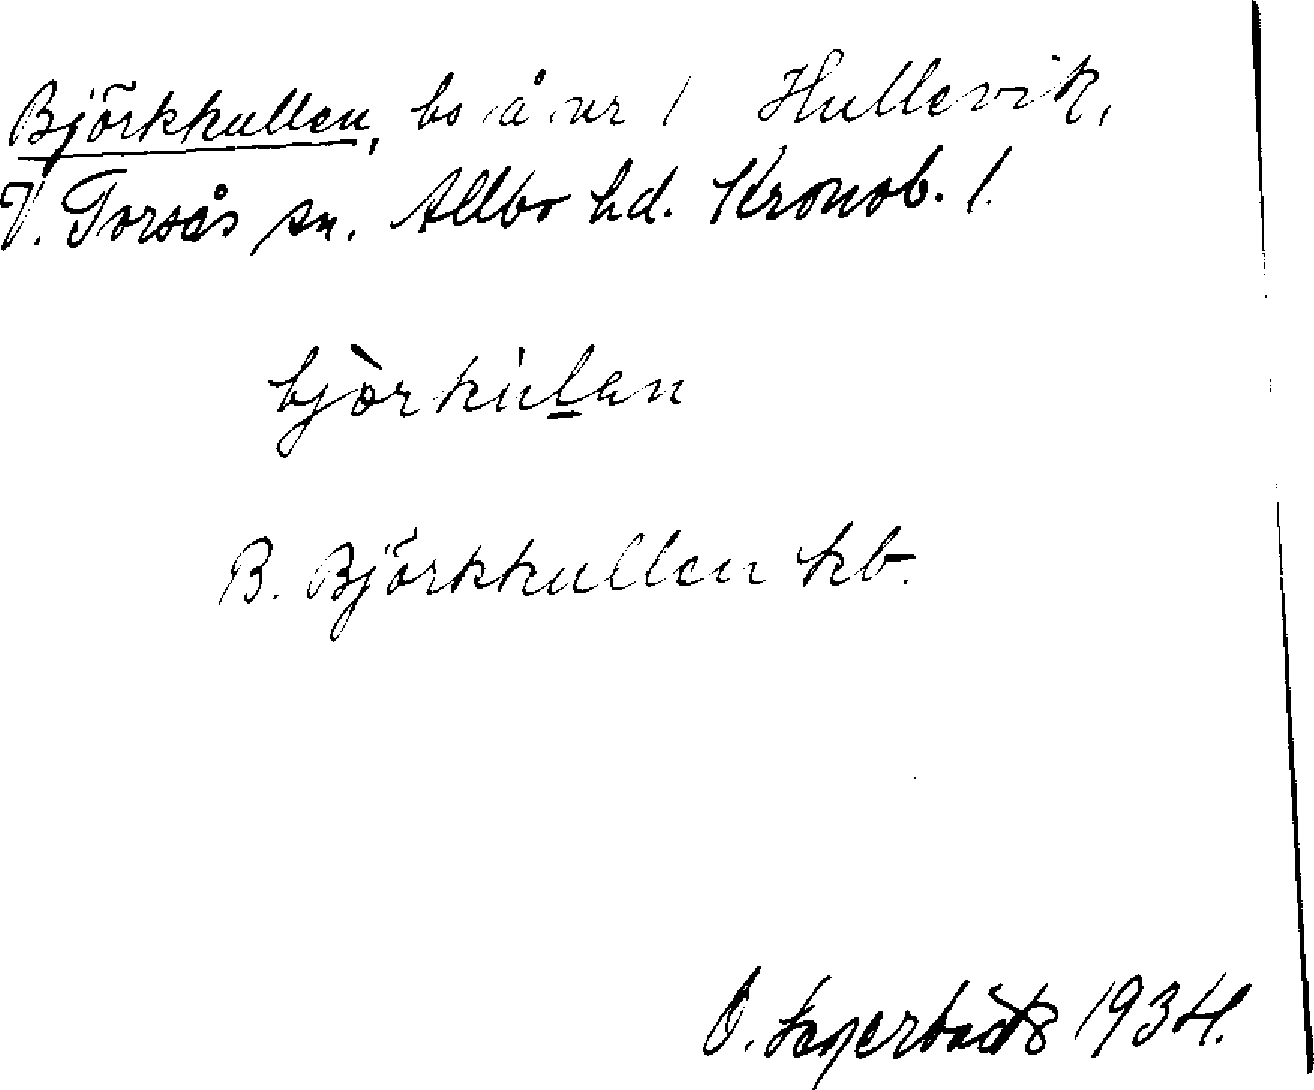 Björkkullen, bs å nr 1 Hullevik,
V. Torsås sn. Allbo hd. Kronob. l.
bjòrkùlan
B. Björkkullen kb.
1934.